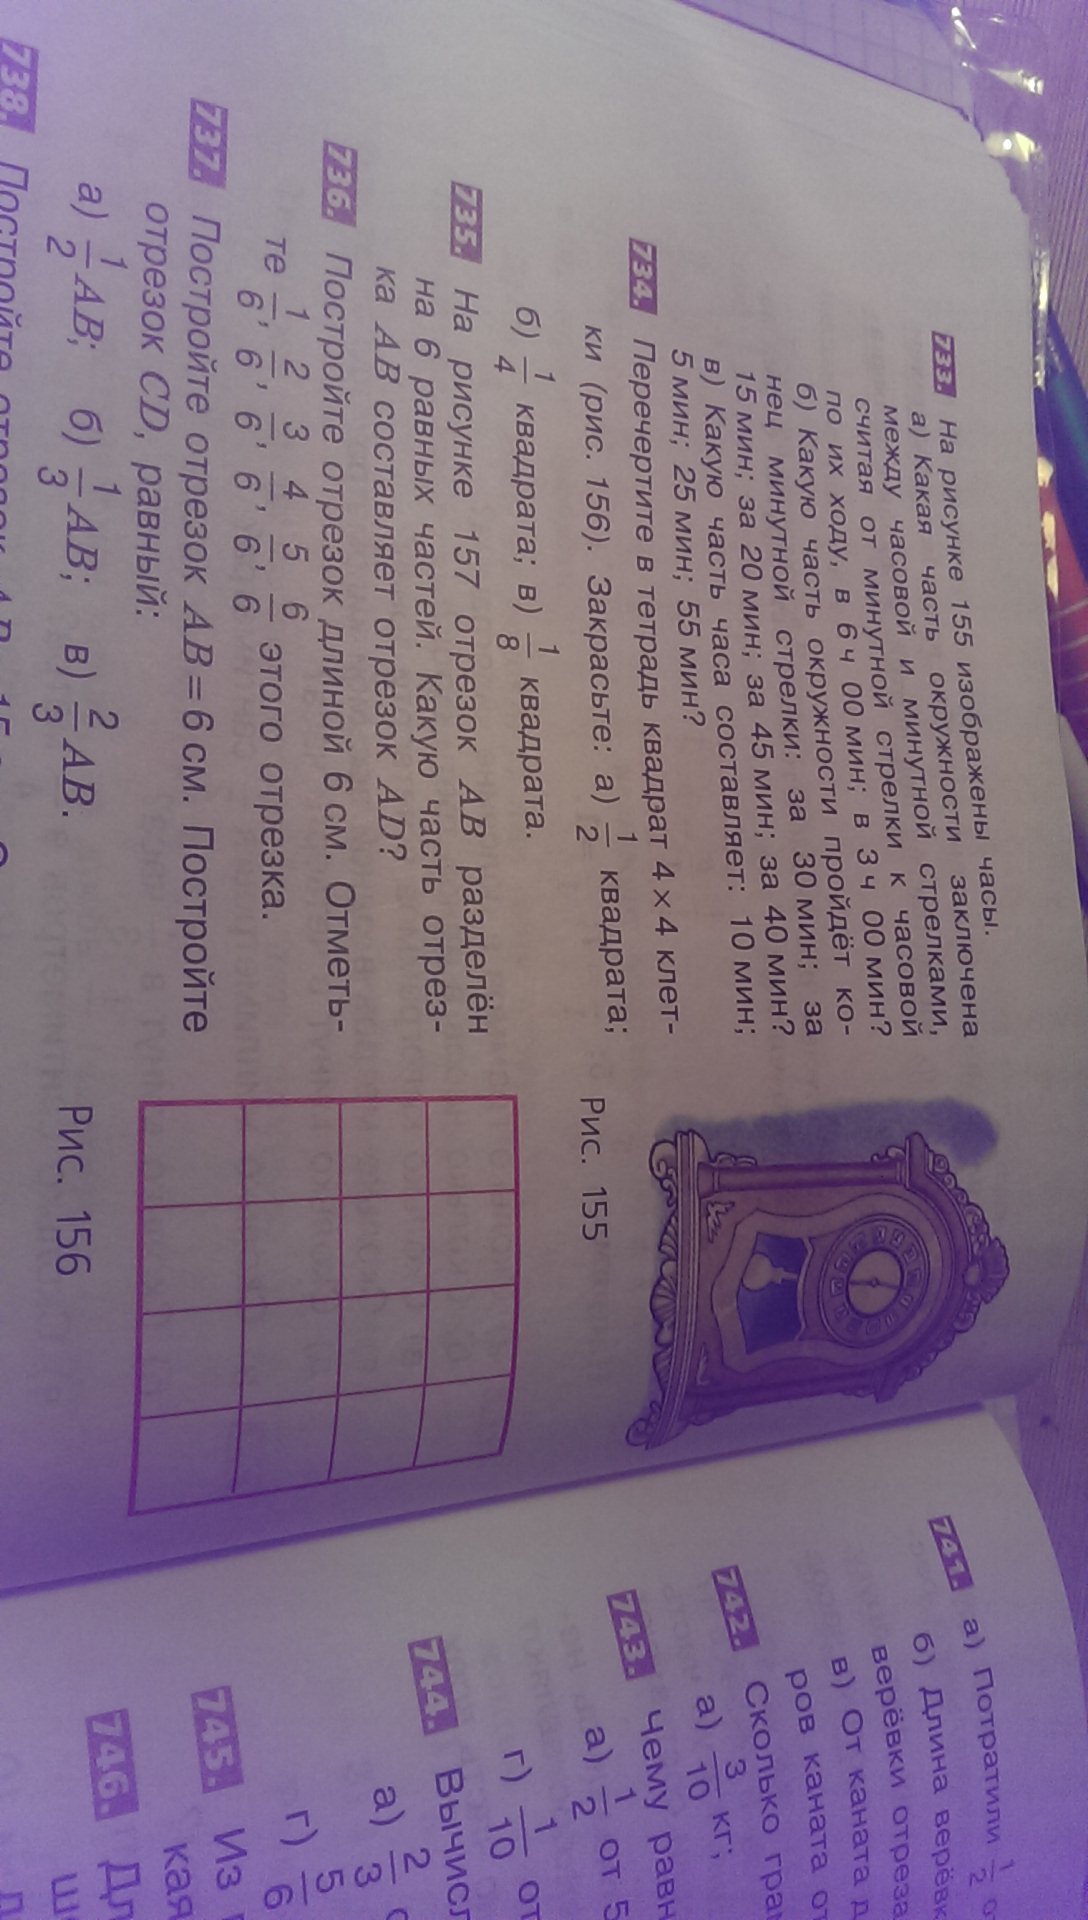 733. На рисунке 155 изображены часы.
а) Какая часть окружности заключена
между часовой и минутной стрелками,
считая от минутной стрелки к часовой
по их ходу, в 6 ч 00 мин; в 3 ч 00 мин?
б) Какую часть окружности пройдёт ко-
нец минутной стрелки: за 30 мин; за
15 мин; за 20 мин; за 45 мин; за 40 мин?
в) Какую часть часа составляет: 10 мин;
5 мин; 25 мин; 55 мин?
734. Перечертите в тетрадь квадрат 4 × 4 клет-
ки (рис. 156). Закрасьте: а) 1/2 квадрата;
б) 1/4 квадрата; в) 1/8 квадрата.
735. На рисунке 157 отрезок AB разделён
на 6 равных частей. Какую часть отрез-
ка AB составляет отрезок AD?
736. Постройте отрезок длиной 6 см. Отметь-
те 1/6, 2/6, 3/6, 4/6, 5/6, 6/6 этого отрезка.
737. Постройте отрезок AB = 6 см. Постройте
отрезок CD, равный:
а) 1/2 AB; б) 1/3 AB; в) 2/3 AB.
738. Постройте отрезок AB
Рис. 155
Рис. 156
741. а) Потратили 1/2
б) Длина верёвк
верёвки отреза
в) От каната д
ров каната от
742. Сколько грам
а) 3/10 кг;
743. Чему равн
а) 1/2 от 5
г) 1/10 от
744. Вычисл
а) 2/3
г) 5/6
745. Из
кая
746. Дл